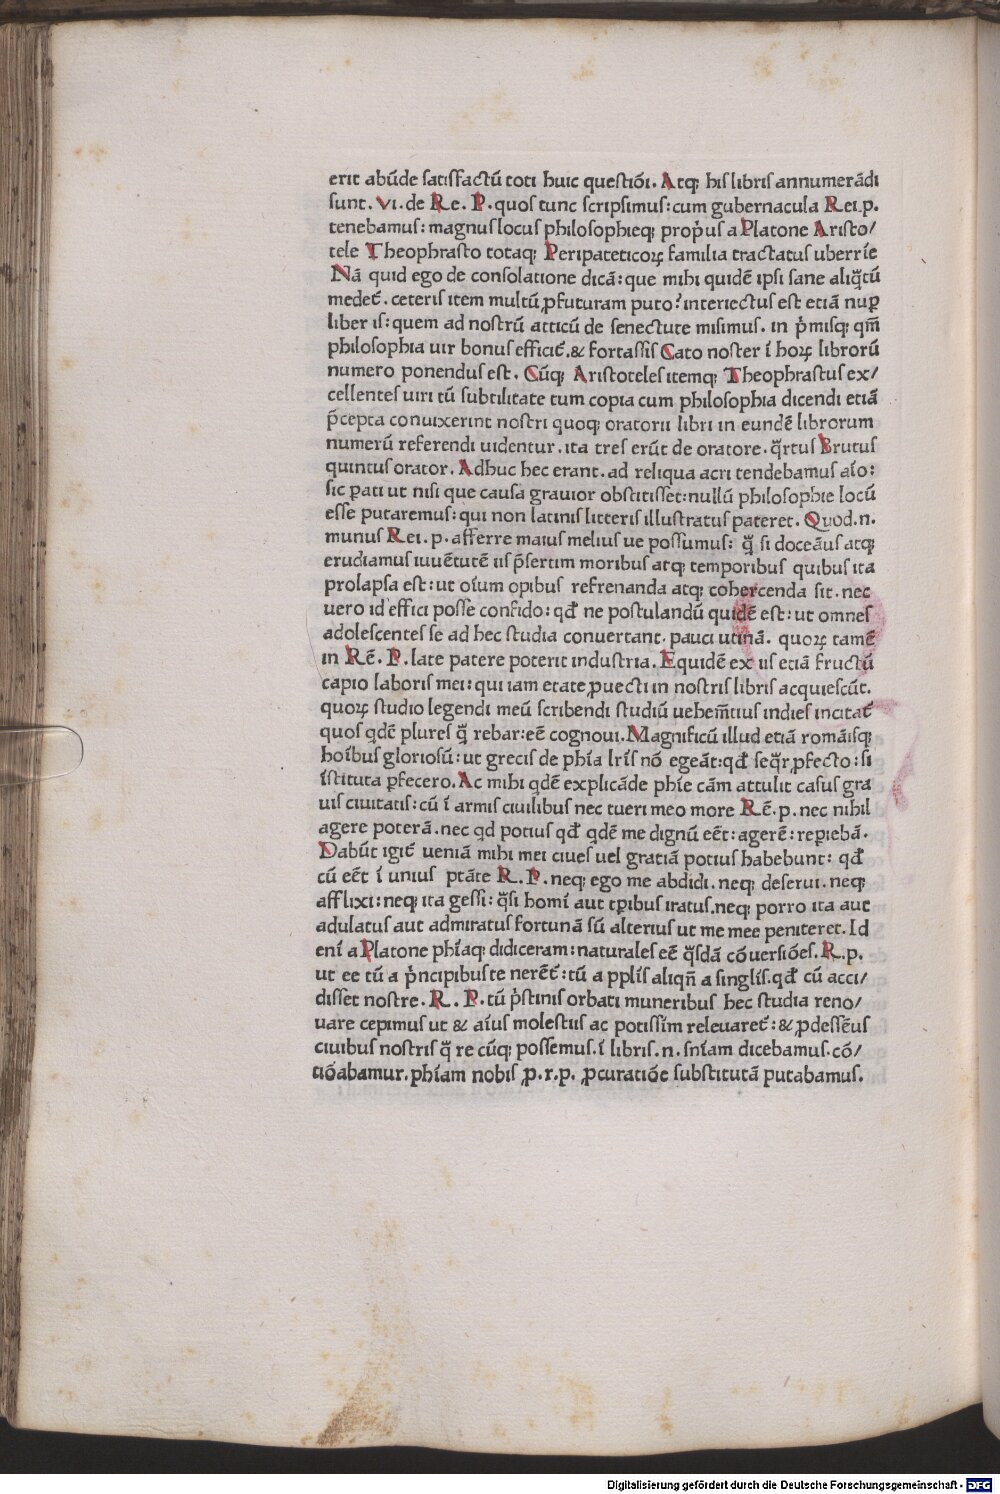 erit abūde satisfactū toti huic questiōi. Atq; his libris annumerādi
sunt. vi. de Re. P. quos tunc scripsimus: cum gubernacula Rei.p.
tenebamus: magnus locus philosophieq; prop̄us a Platone Aristo/
tele Theophrasto totaq; Peripateticoꝝ familia tractatus uberrīe
Nā quid ego de consolatione dicā: que mihi quidē ipsi sane aliq̄tū
medet̄. ceteris item multū ꝓfuturam puto? interiectus est etiā nuꝑ
liber is: quem ad nostrū atticū de senectute misimus. in p̄misq; qm̄
philosophia uir bonus efficit̄. & fortassis Cato noster ī hoꝝ librorū
numero ponendus est. Cūq; Aristoteles itemq; Theophrastus ex/
cellentes uiri tū subtilitate tum copia cum philosophia dicendi etiā
p̄cepta conuixerint nostri quoq; oratorii libri in eundē librorum
numerū referendi uidentur. ita tres erūt de oratore. q̄rtus Brutus
quintus orator. Adhuc hec erant. ad reliqua acri tendebamus aīo:
sic ꝑati ut nisi que causa grauior obstitisset: nullū philosophie locū
esse putaremus: qui non latinis litteris illustratus pateret. Quod.n.
munus Rei. p. afferre maius melius ue possumus: q̄ si doceāus atq;
erudiamus iuuētutē iis p̄sertim moribus atq; temporibus quibus ita
prolapsa est: ut oīum opibus refrenanda atq; cohercenda sit. nec
uero id effici posse confido: qd̄ ne postulandū quidē est: ut omnes
adolescentes se ad hec studia conuertant. pauci utinā. quoꝝ tamē
in Rē. P. late patere poterit industria. Equidē ex iis etiā fructū
capio laboris mei: qui iam etate ꝓuecti in nostris libris acquiescūt.
quoꝝ studio legendi meū scribendi studiū uehem̄tius indies incitat̄
quos qdē plures q̄ rebar: eē cognoui. Magnificū illud etiā romāisq;
hoībus gloriosū: ut grecis de phīa lrīs nō egeāt: qd̄ seq̄r ꝓfecto: si
īstituta ꝑfecero. Ac mihi qdē explicāde phīe cām attulit casus gra
uis ciuitatis: cū ī armis ciuilibus nec tueri meo more Rē. p. nec nihil
agere poterā. nec qd potius qd̄ qdē me dignū eēt: agerē: reꝑiebā.
Dabūt igit̄ ueniā mihi mei ciues uel gratiā potius habebunt: qd̄
cū eēt ī unius ptāte R. P. neq; ego me abdidi. neq; deserui. neq;
afflixi: neq; ita gessi: q̄si homī aut tꝑibus iratus. neq; porro ita aut
adulatus aut admiratus fortunā sū alterius ut me mee peniteret. Id
enī a Platone phīaq; didiceram: naturales eē q̄sdā cōuersiōes. R. p.
ut ee tū a p̄ncipibus te nerēt̄: tū a pplīs aliqn̄ a singlīs. qd̄ cū acci/
disset nostre. R. P. tū p̄stinis orbati muneribus hec studia reno/
uare cepimus ut & aīus molestiis ac potissīm releuaret̄: & ꝓdessēus
ciuibus nostris q̄ re cūq; possemus. ī libris. n. snīam dicebamus. cō/
tiōabamur. phīam nobis ꝓ. r. p. ꝓcuratiōe substitutā putabamus.
Digitalisierung gefördert durch die Deutsche Forschungsgemeinschaft - DFG